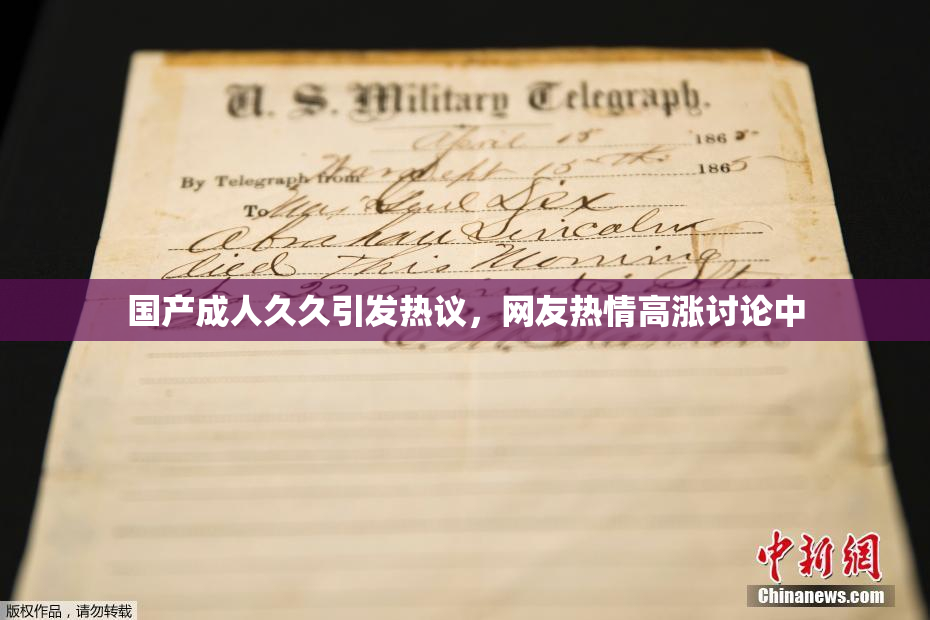 U. S. Military Telegraph.
April 15 1865
By Telegraph from War Dept 15th 1865
To Maj Genl Dix
Abraham Lincoln
died This Morning
at 22 minutes after
国产成人久久引发热议，网友热情高涨讨论中
E. M. Stanton
中新网
Chinanews.com
版权作品，请勿转载